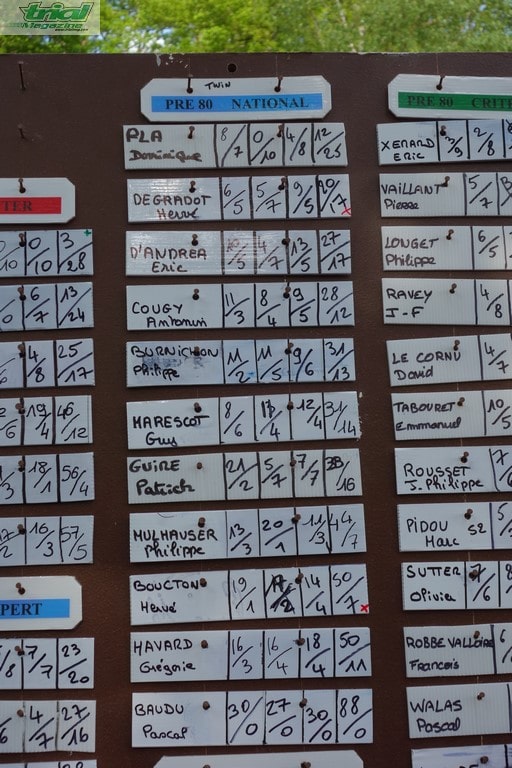 trial
Magazine
TER
0/10 0/10 3/28
6/7 13/24
4/8 25/17
19/4 46/12
18/1 56/4
16/3 57/5
PERT
7/7 23/20
4/7 27/16
TWIN
PRE 80 NATIONAL
PLA Dominique 8/7 0/10 4/8 12/25
DEGRADOT Hervé 6/5 5/7 9/5 20/17 x
D'ANDREA Eric 10/5 4/7 13/5 27/17
COUGY Antonin 11/3 8/4 9/5 28/12
BURNICHON Philippe 11/2 11/5 9/6 31/13
MARESCOT Guy 8/6 /4 12/4 31/14
GUIRE Patrick 21/2 5/7 7/7 /16
MULHAUSER Philippe 13/3 20/1 11/3 44/7
BOUCTON Hervé 19/1 17/2 14/4 50/7 x
HAVARD Grégorie 16/3 16/4 18/4 50/11
BAUDU Pascal 30/0 27/0 30/0 88/0
PRE 80 CRITE
XENARD Eric /9 2/8
VAILLANT Pierre 5/7
LONGET Philippe 6/5
RAVEY J-F 4/8
LE CORNU David 4/7
TABOURET Emmanuel 10/5
ROUSSET J. Philippe 7/6
PIDOU Marc 52 5/
SUTTER Olivier 7/6 8/
ROBBE VALLOIRE Francois 6/
WALAS Pascal